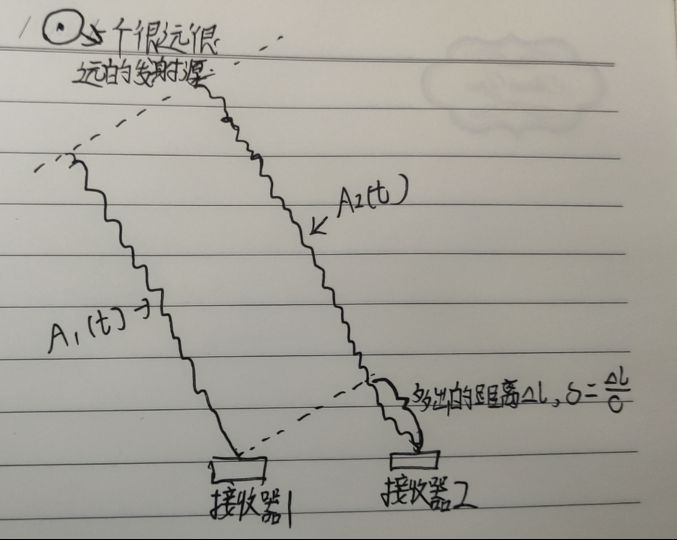 一个很远很
远的发射源
A₂(t)
A₁(t)
多出的距离ΔL, δ=ΔL/C
接收器1
接收器2